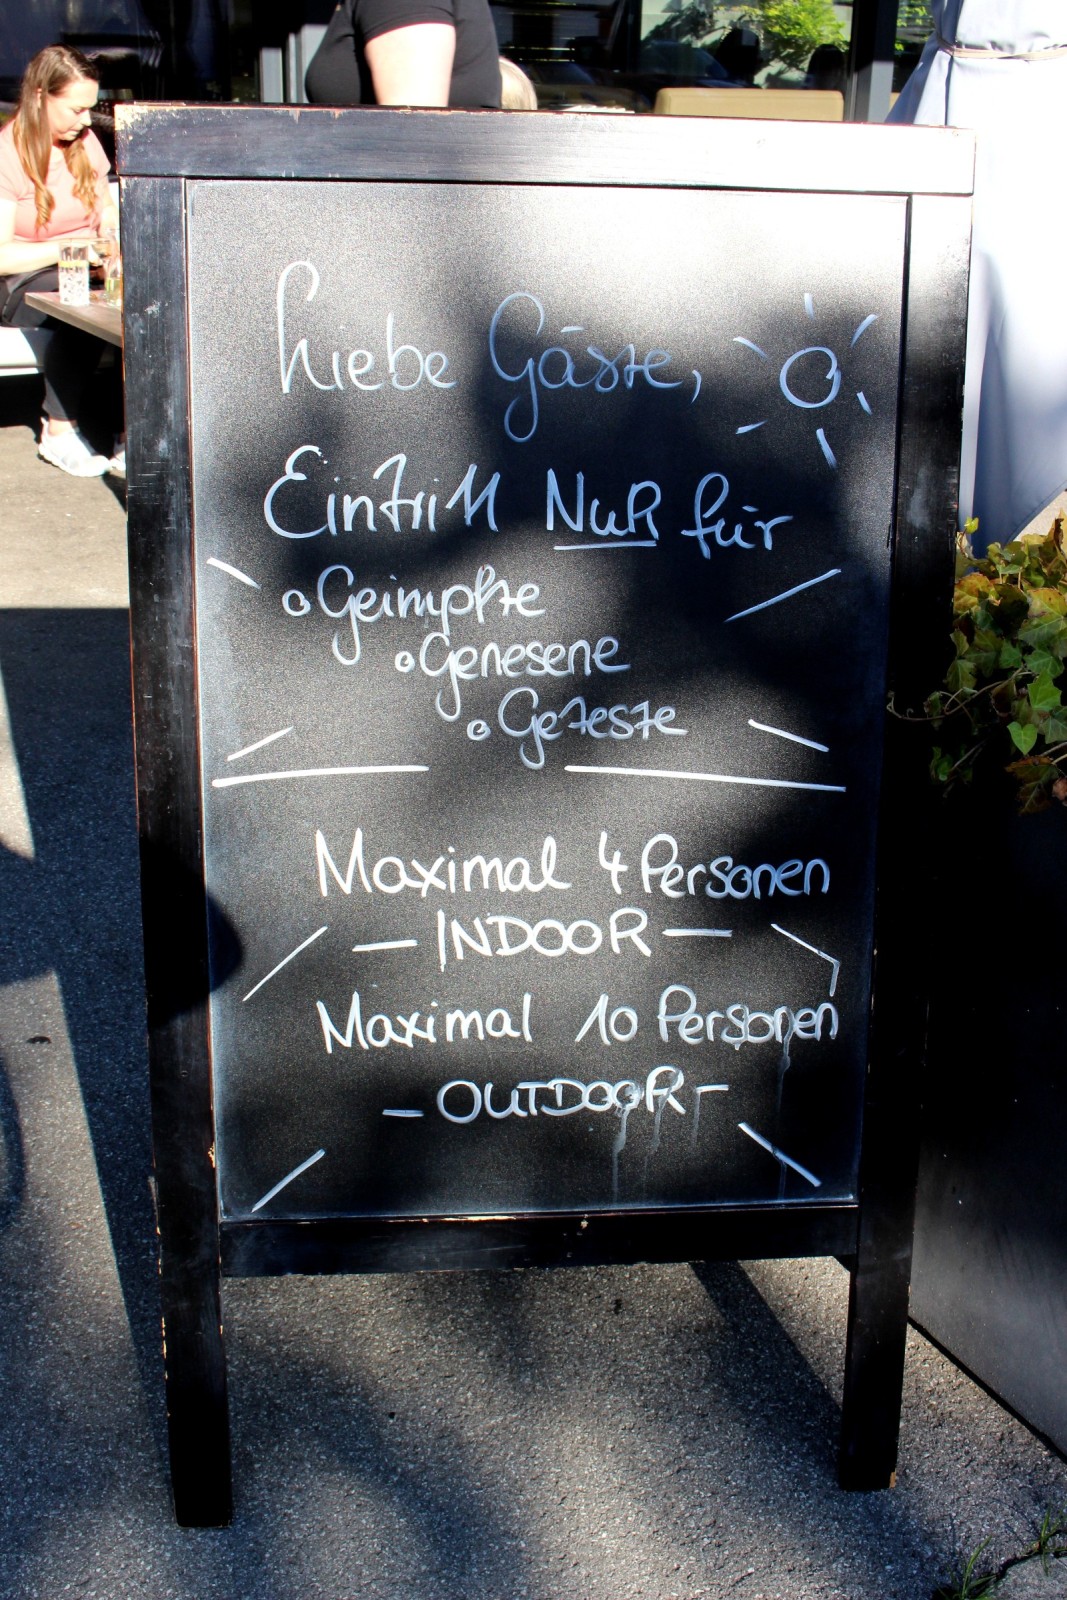 Liebe Gäste,
Eintritt NuR für
o Geimpfte
o Genesene
o Geteste
Maximal 4 Personen
- INDOOR -
Maximal 10 Personen
- OUTDOOR -